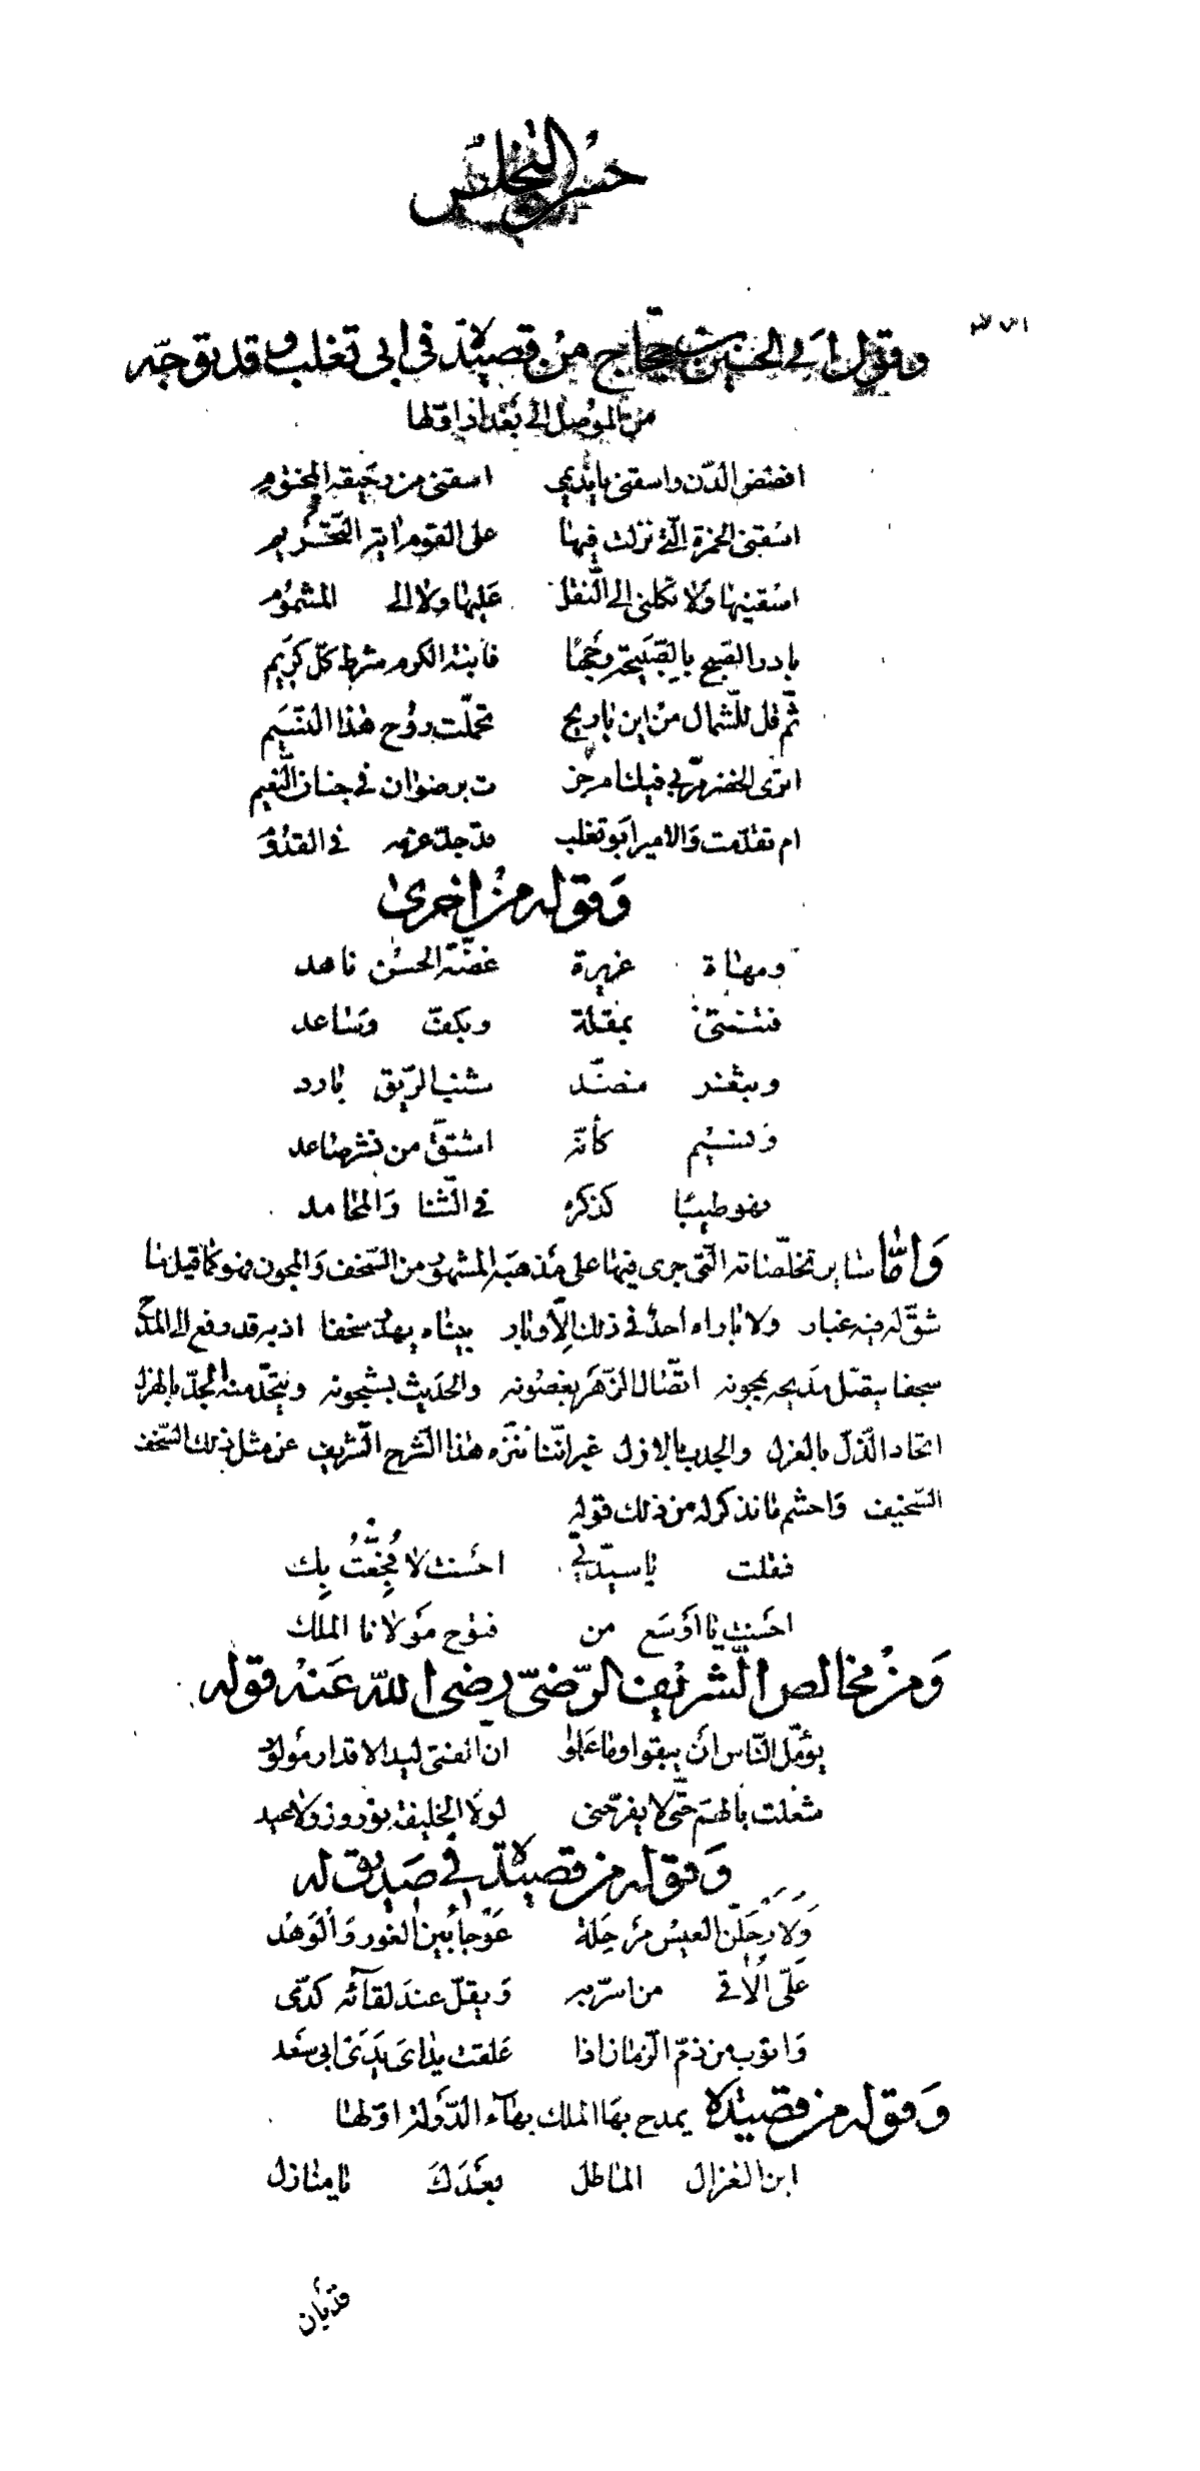 حسن التخلص
وقول ابي الحسين بن حجاج من قصيدة في ابي تغلب وقد توجّه
من الموصل الى بغداد اوّلها
افضض الدّن واسقني يا نديمي اسقني من رحيقه المختوم
اسقني الخمرة الّتي نزلت فيها على القوم اية التّحريم
اسقنيها ولا تكلني الى النّقل عليها ولا الى المشموم
بادر القبح بالقبيحة وجها فابنة الكروم شرط كلّ كريم
ثمّ قل للّشمال من اين يا ريح تحمّلت روح هذا النّسيم
اترى الخضر مرّ لي فيك ام جز ت برضوان في جنان النّعيم
ام تقدّمت والامير ابو تغلب قد جدّ عزمه في القدوم
وقوله من اخرى
ومهاة غريرة غضّة الحسن ناهد
فتنتني بمقلة وبكفّ وساعد
وبثغر منضّد شنب الرّيق بارد
ونسيم كأنّه اشتقّ من نشر صاعد
فهو طيبًا كذكره في الثّنا والمحامد
وامّا سائر تخلّصاته الّتي جرى فيها على مذهبه المشهور من السّخف والمجون فهو كما قيل ما
شقّ له فيه غبار ولا باراه احد في ذلك الّا وبار بيناه يهذ سخفا اذ به قد رفع الى المدح
سجفا يتصّل مديحه بمجونه اتّصال الزّهر بغصونه والحديث بشجونه ويتّحد منه الجدّ بالهزل
اتحاد الذّلّ بالغزل والجدب بالازل غير انّنا ننزّه هذا الشّرح الشّريف عن مثل ذلك السّخف
السّخيف واحشم ما نذكر له من ذلك قوله
فقلت يا سيّدتي احسنت لا فُجِعْتُ بِك
احسنت يا اوسع من فتوح مولانا الملك
ومن مخالص الشّريف الرّضيّ رضي اللّه عنه قوله
يؤمّل النّاس ان يبقوا وما علموا انّ الفتى ليد الاقدار مولود
شغلت بالهمّ حتّى لا يفرّحني لولا الخليفة نوروز ولا عيد
وقوله من قصيدة في صديق له
ولارحلنّ العيس مرحلة عوجا بين الغور والوهد
علّي الاقي من اسرّ به ويقلّ عند لقائه كدّي
واتوب من ذمّ الزّمان اذا علقت يداي بيدي ابي سعد
وقوله من قصيدة يمدح بها الملك بهاء الدّولة اوّلها
اين الغزال الماطل بعدك يا منازل
قد بان